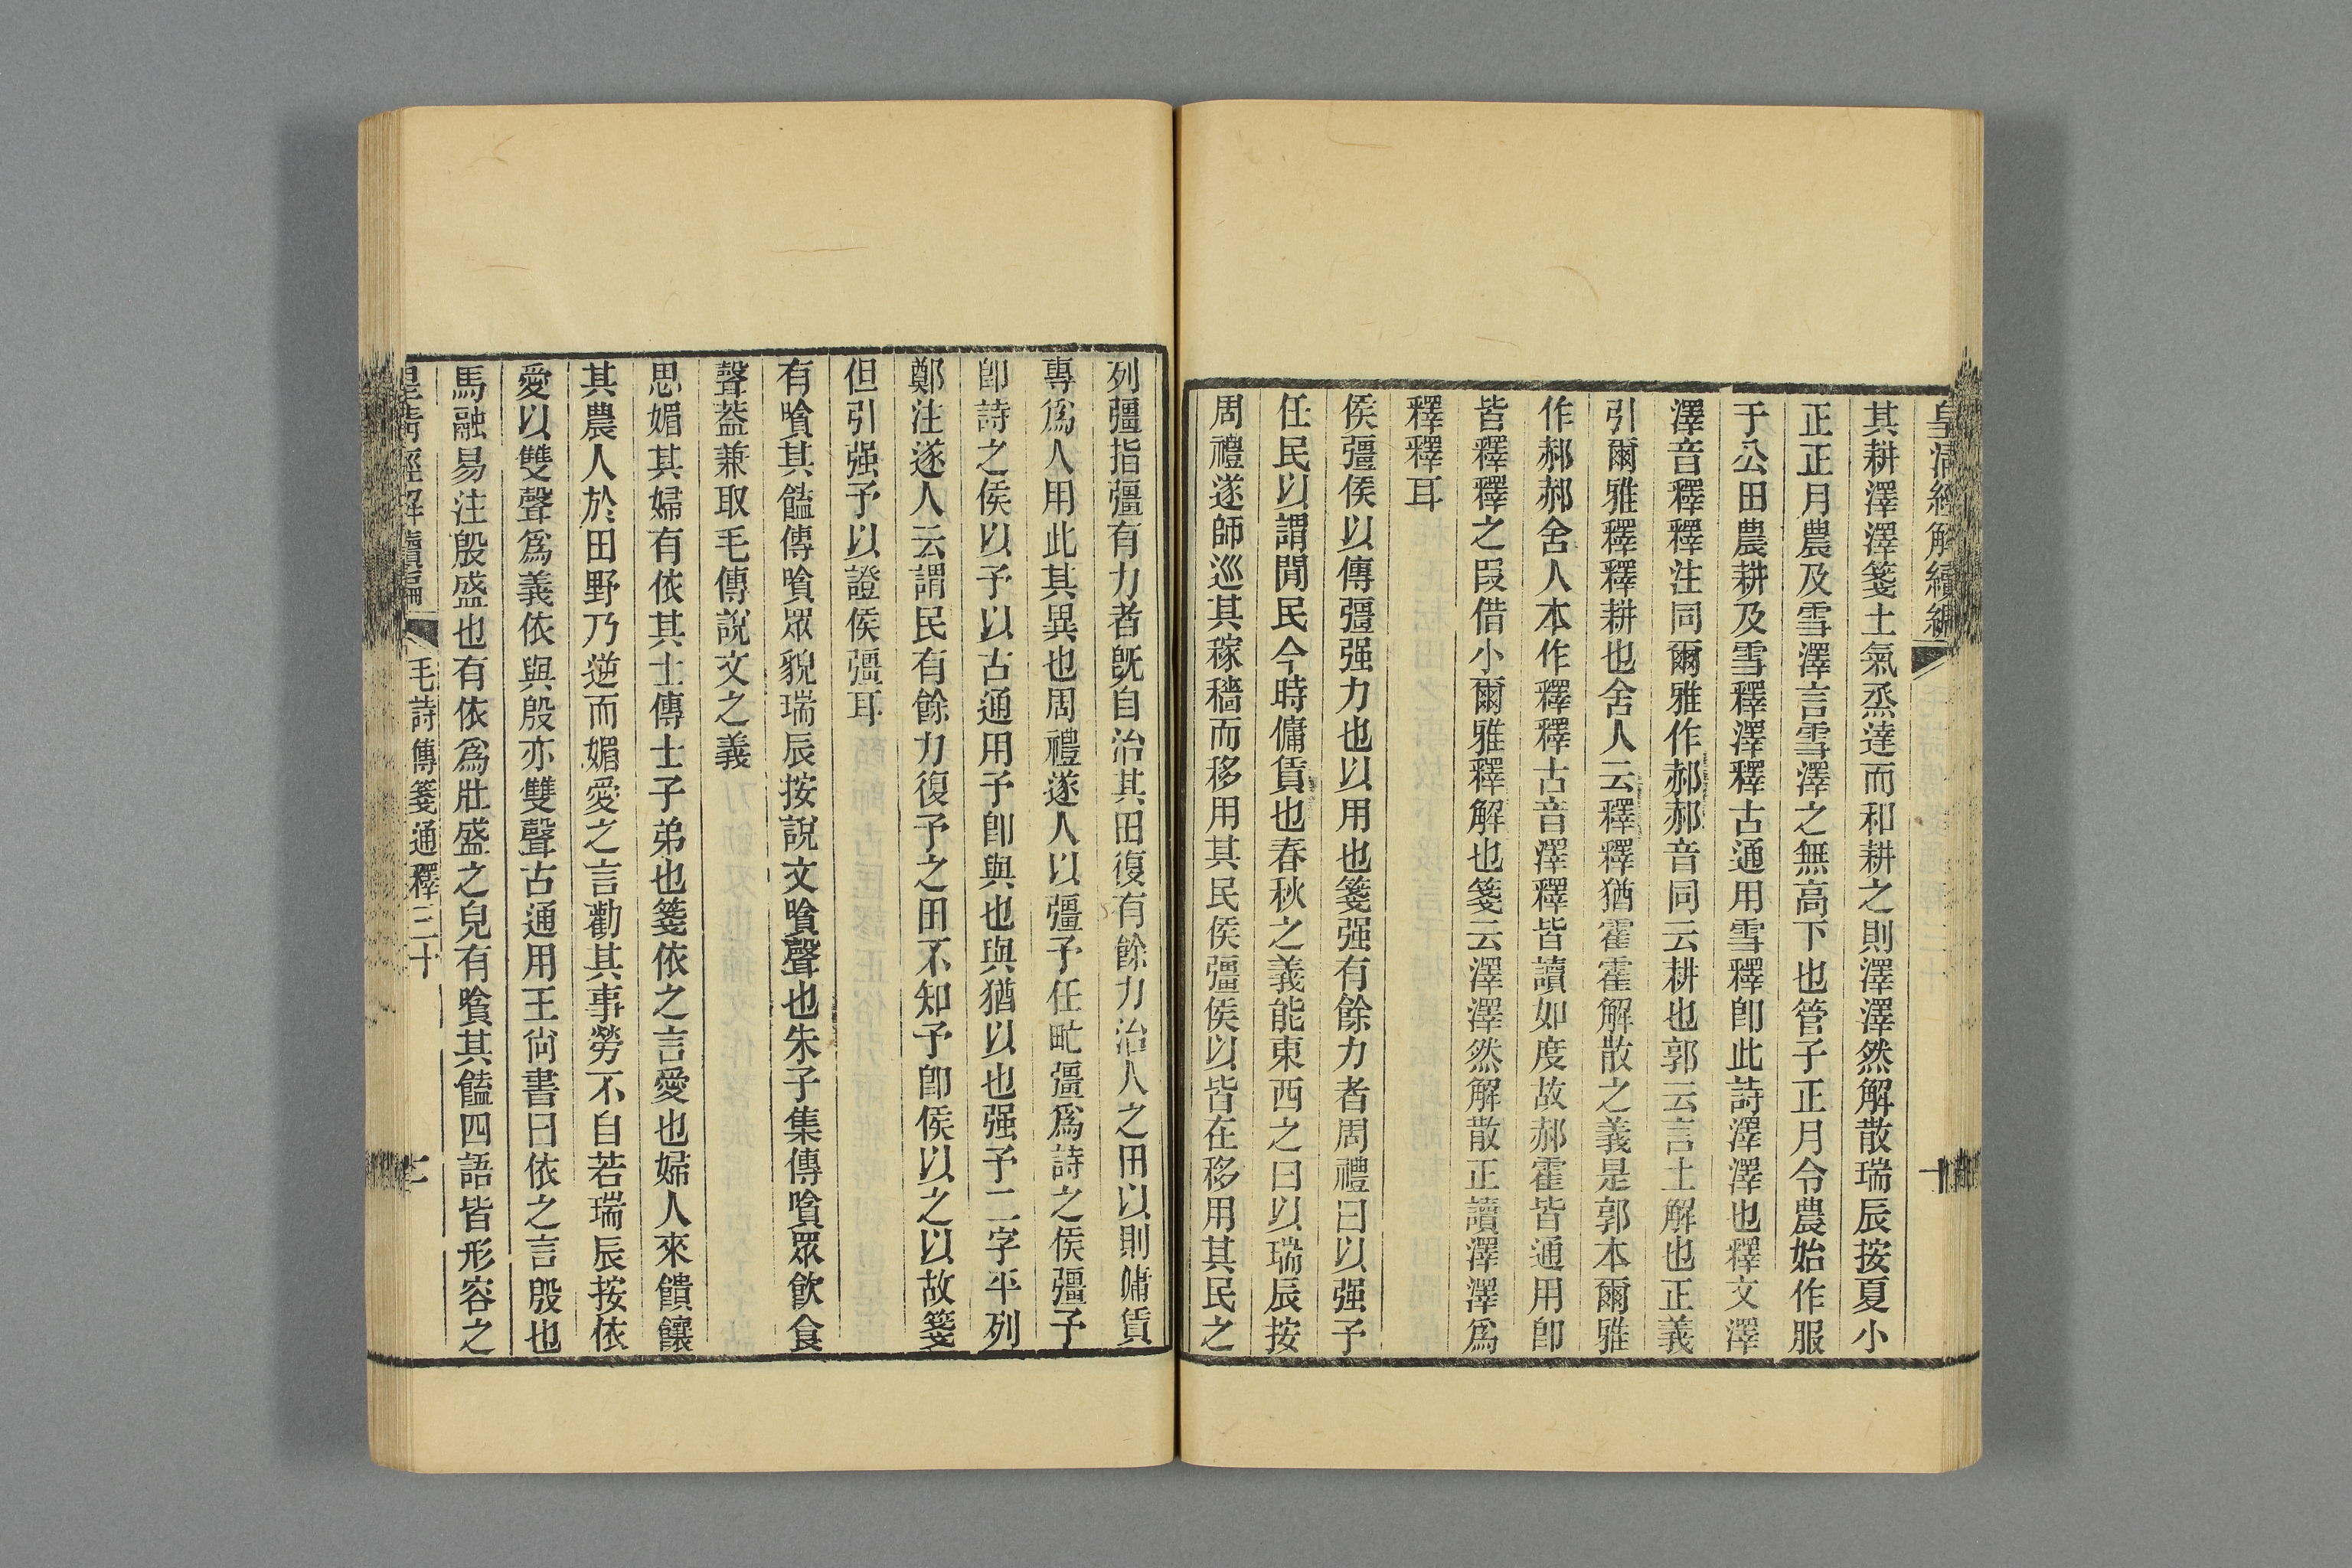 皇清經解續編
十
其耕澤澤箋土氣烝達而和耕之則澤澤然解散瑞辰按夏小
正正月農及雪澤言雪澤之無高下也管子正月令農始作服
于公田農耕及雪釋澤釋古通用雪釋卽此詩澤澤也釋文澤
澤音釋釋注同爾雅作郝郝音同云耕也郭云言土解也正義
引爾雅釋釋耕也舍人云釋釋猶霍霍解散之義是郭本爾雅
作郝郝舍人本作釋釋古音澤釋皆讀如度故郝霍皆通用卽
皆釋釋之叚借小爾雅釋解也箋云澤澤然解散正讀澤澤爲
釋釋耳
侯彊侯以傳彊强力也以用也箋强有餘力者周禮曰以强予
任民以謂閒民今時傭賃也春秋之義能東西之曰以瑞辰按
周禮遂師巡其稼穡而移用其民侯彊侯以皆在移用其民之
列彊指彊有力者旣自治其田復有餘力治人之田以則傭賃
專爲人用此其異也周禮遂人以彊予任甿彊爲詩之侯彊予
卽詩之侯以予以古通用予卽與也與猶以也强予二字平列
鄭注遂人云謂民有餘力復予之田不知予卽侯以之以故箋
但引强予以證侯彊耳
有噾其饁傳噾眾貌瑞辰按說文噾聲也朱子集傳噾眾飮食
聲葢兼取毛傳說文之義
思媚其婦有依其士傳士子弟也箋依之言愛也婦人來饋饟
其農人於田野乃逆而媚愛之言勸其事勞不自若瑞辰按依
愛以雙聲爲義依與殷亦雙聲古通用王尙書曰依之言殷也
馬融易注殷盛也有依爲壯盛之皃有噾其饁四語皆形容之
皇淸經解續編
毛詩傳箋通釋三十